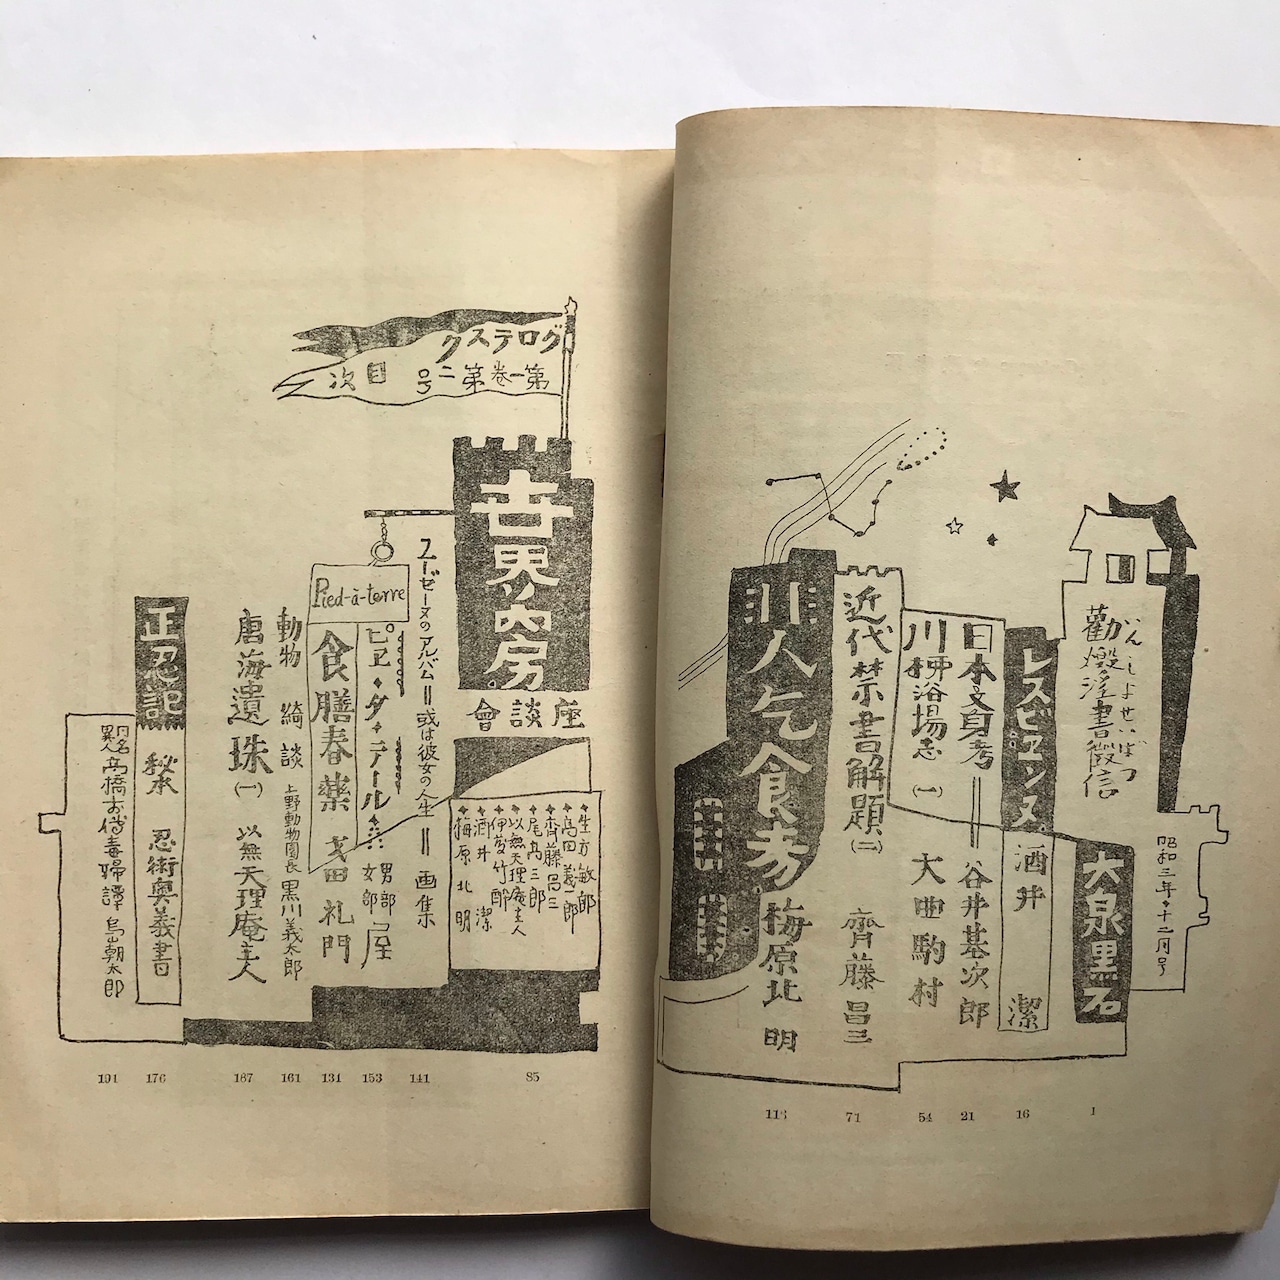 グロテスク
第一巻第二号 目次
昭和三年・十二月号
勸燬淫書徴信
かんしよせいばつ
大泉黒石
レスビエンヌ 酒井 潔
日本文身考＝谷井基次郎
川柳浴場志(一) 大曲駒村
近代禁書解題(二) 齊藤昌三
非人乞食考 梅原北明
1
16
21
54
71
113
世界ノ内房
座談會
生方敏郎
高田義一郎
齊藤昌三
尾高三郎
以無天理庵主人
伊藤竹酔
酒井潔
梅原北明
ユーゼーヌのアルバム＝或は彼女の人生＝画集
Pied-à-terre
ピヱ・ダ・テール 男部屋 女部屋
食膳春薬 戈田礼門
動物綺談 上野動物園長 黒川義太郎
唐海遺珠(一) 以無天理庵主人
正忍記 秘本 忍術奥義書
異名高橋お傳毒婦譚 烏山朝太郎
85
141
153
131
161
167
176
191